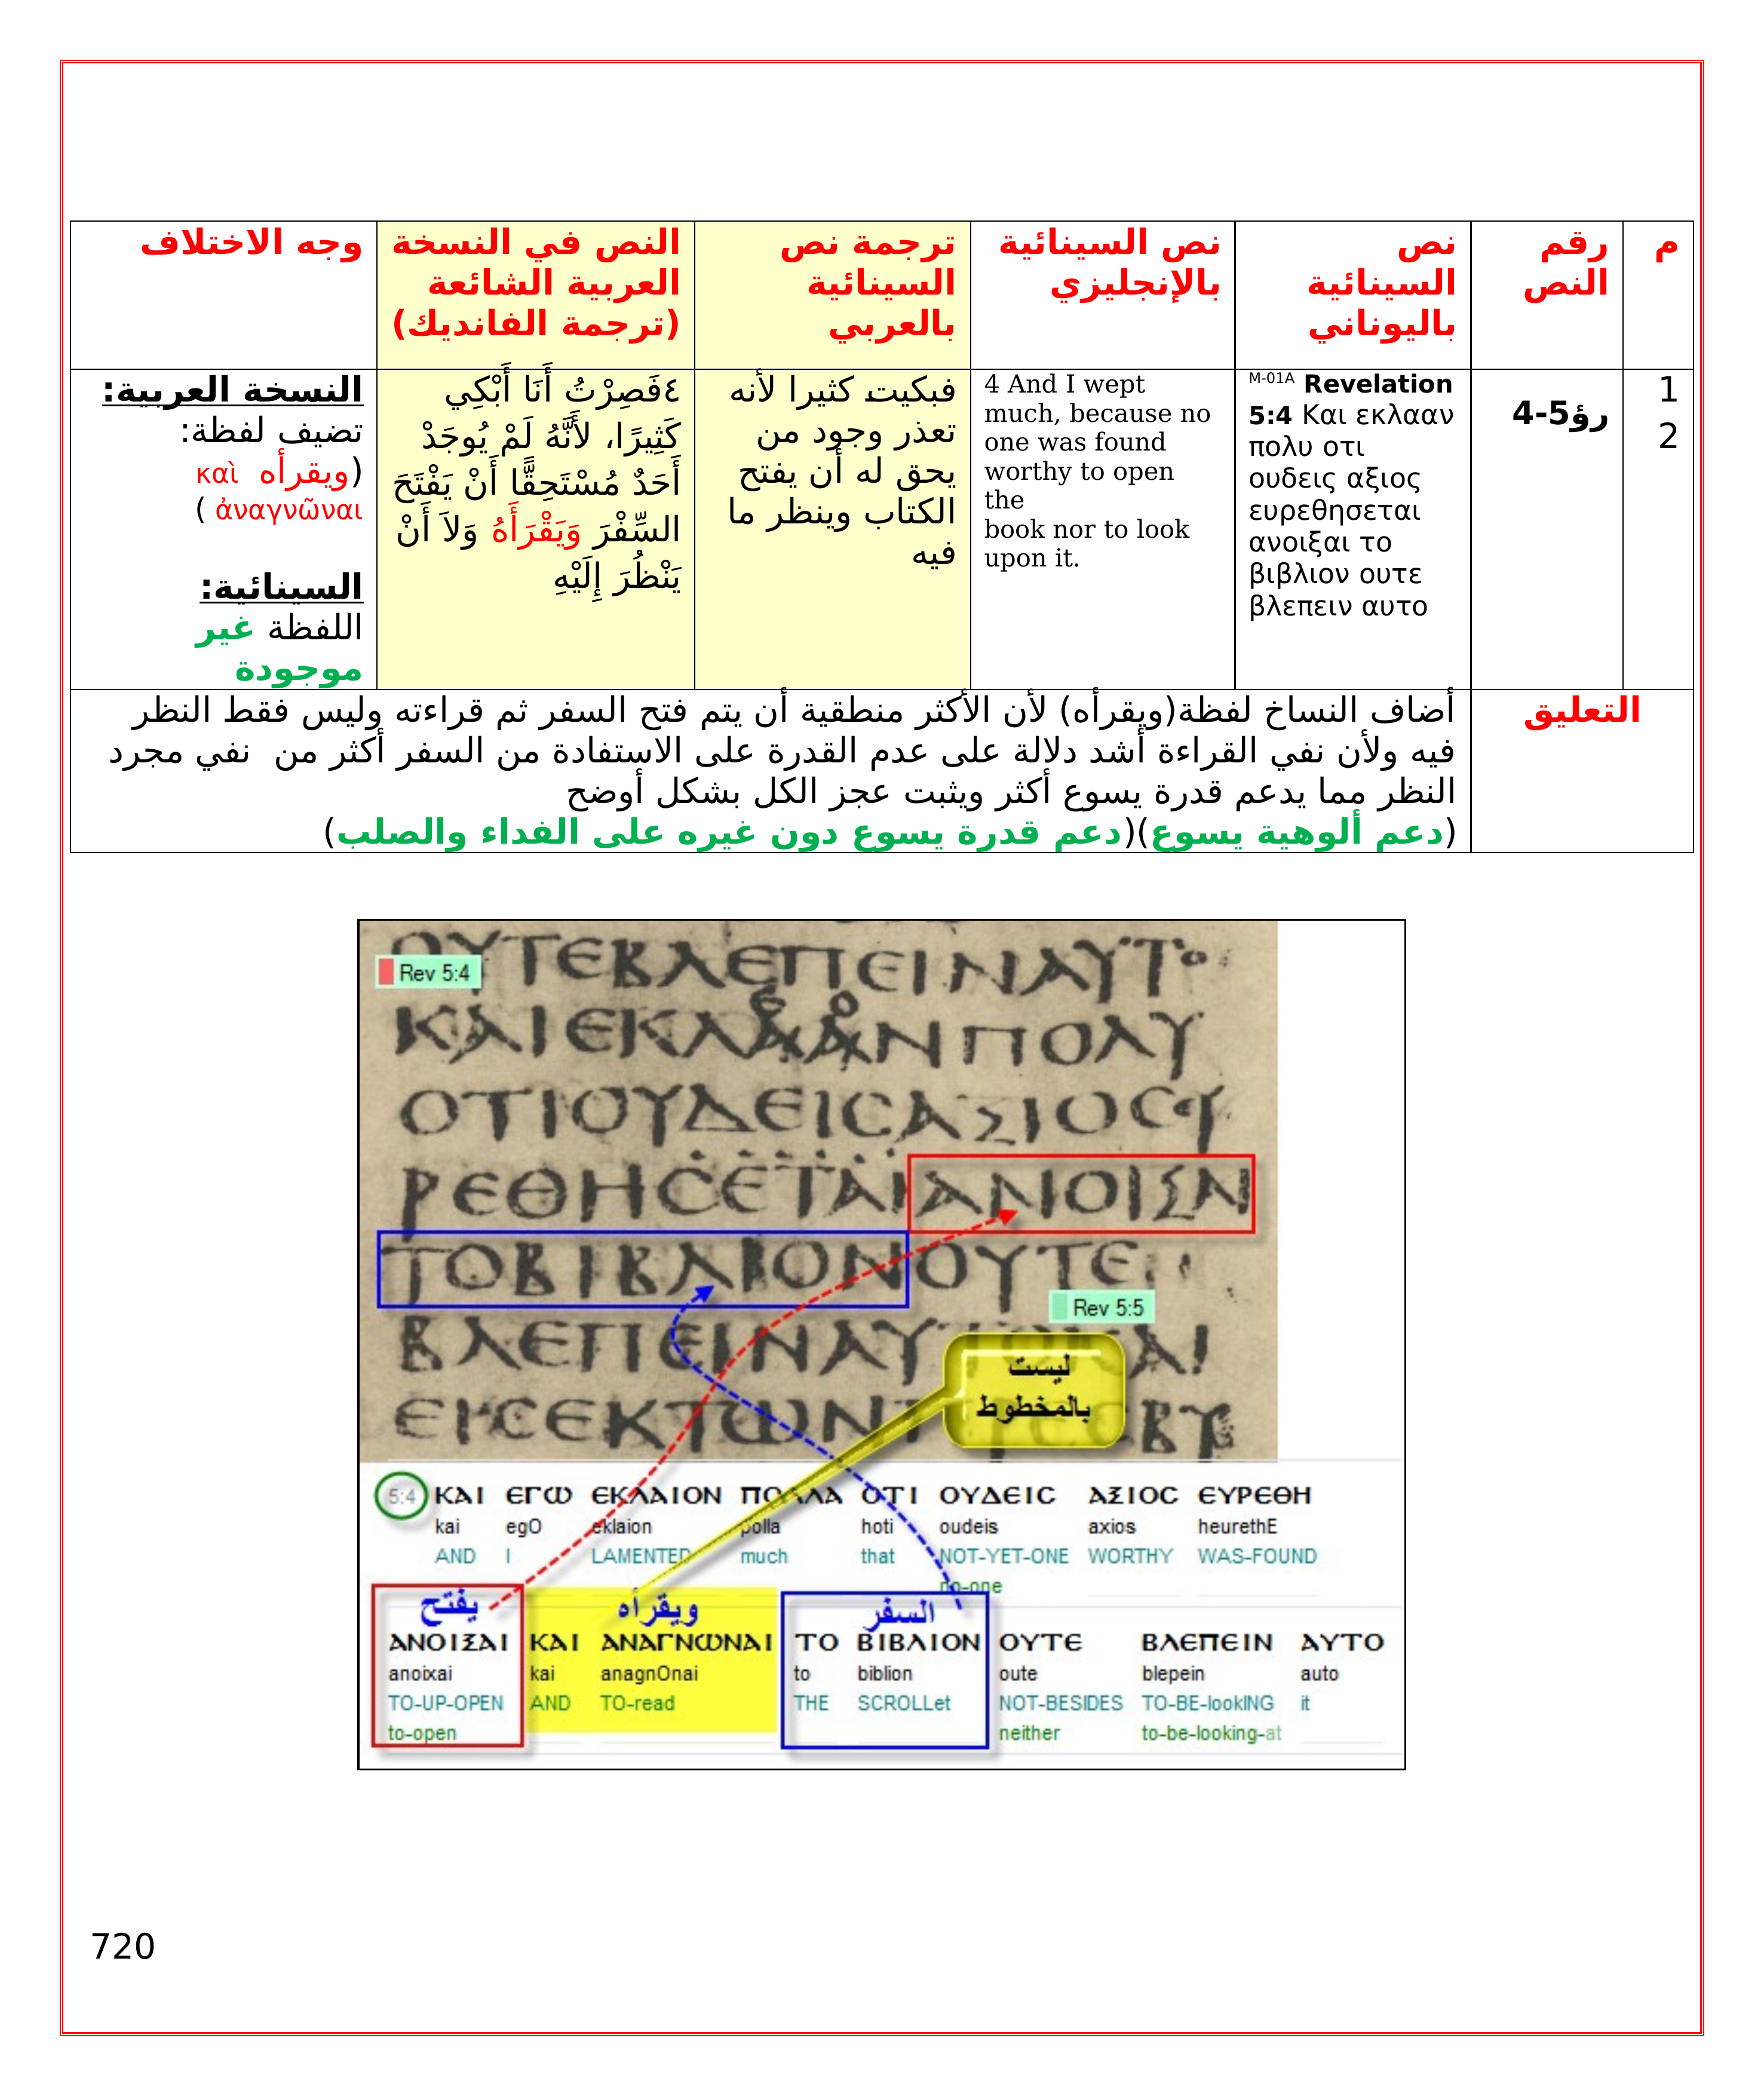 م
رقم
النص
نص
السينائية
باليوناني
نص السينائية
بالإنجليزي
ترجمة نص
السينائية
بالعربي
النص في النسخة
العربية الشائعة
(ترجمة الفانديك)
وجه الاختلاف
1
2
رؤ5-4
M-01A Revelation
5:4 Και εκλααν
πολυ οτι
ουδεις αξιος
ευρεθησεται
ανοιξαι το
βιβλιον ουτε
βλεπειν αυτο
4 And I wept
much, because no
one was found
worthy to open
the
book nor to look
upon it.
فبكيت كثيرا لأنه
تعذر وجود من
يحق له أن يفتح
الكتاب وينظر ما
فيه
٤فَصِرْتُ أَنَا أَبْكِي
كَثِيرًا، لأَنَّهُ لَمْ يُوجَدْ
أَحَدٌ مُسْتَحِقًّا أَنْ يَفْتَحَ
السِّفْرَ وَيَقْرَأَهُ وَلاَ أَنْ
يَنْظُرَ إِلَيْهِ
النسخة العربية:
تضيف لفظة:
(ويقرأه καὶ
ἀναγνῶναι )
السينائية:
اللفظة غير
موجودة
التعليق
أضاف النساخ لفظة(ويقرأه) لأن الأكثر منطقية أن يتم فتح السفر ثم قراءته وليس فقط النظر
فيه ولأن نفي القراءة أشد دلالة على عدم القدرة على الاستفادة من السفر أكثر من نفي مجرد
النظر مما يدعم قدرة يسوع أكثر ويثبت عجز الكل بشكل أوضح
(دعم ألوهية يسوع)(دعم قدرة يسوع دون غيره على الفداء والصلب)
ΟΥΤΕΒΛΕΠΕΙΝΑΥΤΟ
Rev 5:4
ΚΑΙΕΚΛΑΑΝΠΟΛΥ
ΟΤΙΟΥΔΕΙϹΑΞΙΟϹΕΥ
ΡΕΘΗϹΕΤΑΙΑΝΟΙΞΑΙ
ΤΟΒΙΒΛΙΟΝΟΥΤΕ
Rev 5:5
ΒΛΕΠΕΙΝΑΥΤΟΚΑΙ
ليست
بالمخطوط
5:4 ΚΑΙ ΕΓΩ ΕΚΛΑΙΟΝ ΠΟΛΛΑ ΟΤΙ ΟΥΔΕΙϹ ΑΞΙΟϹ ΕΥΡΕΘΗ
kai egO eklaion polla hoti oudeis axios heurethE
AND I LAMENTED much that NOT-YET-ONE WORTHY WAS-FOUND
no-one
يفتح ويقرأه السفر
ΑΝΟΙΞΑΙ ΚΑΙ ΑΝΑΓΝΩΝΑΙ ΤΟ ΒΙΒΛΙΟΝ ΟΥΤΕ ΒΛΕΠΕΙΝ ΑΥΤΟ
anoixai kai anagnOnai to biblion oute blepein auto
TO-UP-OPEN AND TO-read THE SCROLLet NOT-BESIDES TO-BE-lookING it
to-open neither to-be-looking-at
720